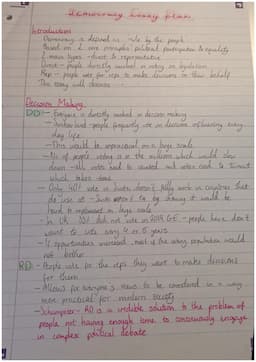 democracy Essay plan
Introduction
- Democracy is defined as rule by the people
- Based on 2 core principles political participation & equality
- 2 main types - direct & representative
- Direct - people directly involved in voting on legislation
- Rep - people vote for reps to make decisions on their behalf
- This essay will discuss
Decision Making
DD: - Everyone is directly involved in decision making
- Switzerland - people frequently vote on decisions influencing every day life
- This would be impractical on a huge scale
- No of people voting is in the millions which would slow
down - all votes had to counted and votes cash to turnout
which takes time
- Only 40% vote in Swiss doesn't fully work in countries that
do use it - Swiss
hard to implement on huge scale
- In UK did not vote in GE - people here don't
want to vote every 4 or 5 years
- If opportunities increased, most of the voting population would
not bother
RD: - People vote for the reps they want to make decisions
for them
- Allows for everyone's views to be considered in a way
more practical for modern society
- Schumpeter - RD is a credible solution to the problem of
people not having enough time to consciously engage
in complex political debate